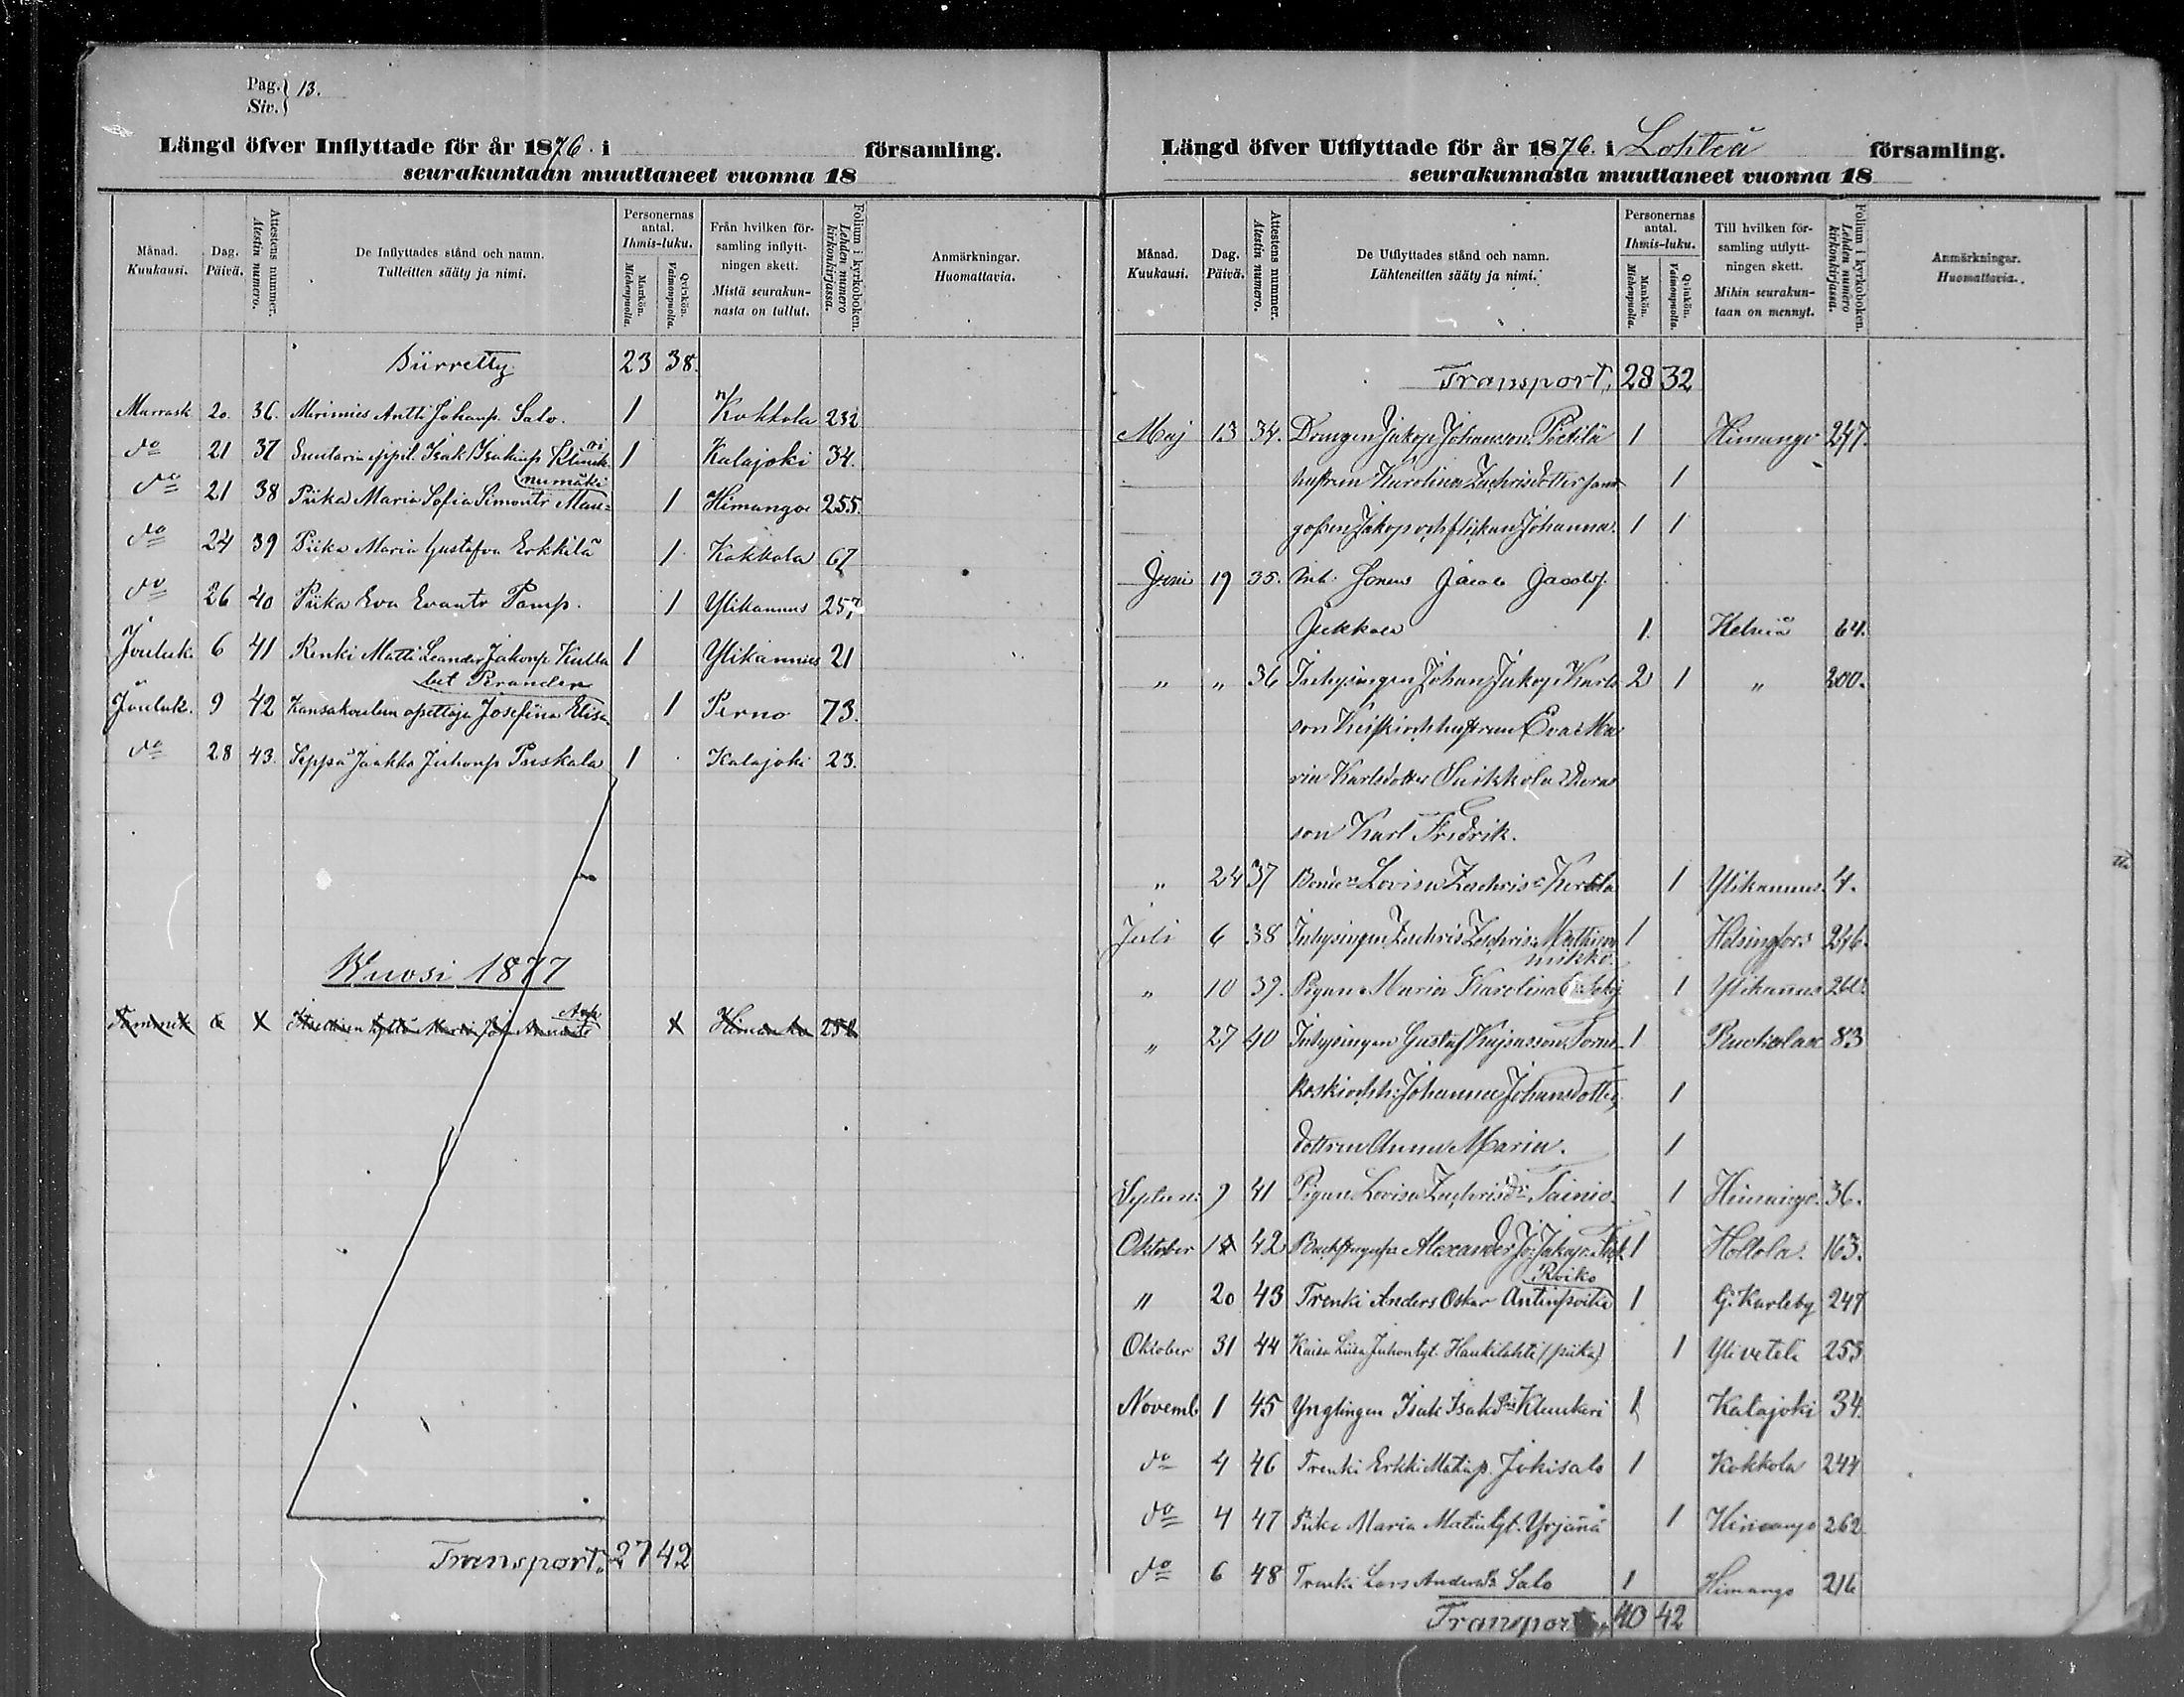 Pag. 13.
Siv.
Längd öfver Inflyttade för år 1876. i församling.
seurakuntaan muuttaneet vuonna 18
Månad. Kuukausi.
Dag. Päivä.
Attestens nummer. Atestin numero.
De Inflyttades stånd och namn. Tulleitten sääty ja nimi.
Personernas antal. Ihmis-luku.
Mankön. Miehenpuolta.
Qvinkön. Vaimonpuolta.
Från hvilken församling inflyttningen skett. Mistä seurakunnasta on tullut.
Folium i kyrkoboken. Lehden numero kirkonkirjassa.
Anmärkningar. Huomattavia.
Siirretty 23 38.
Marrask 20. 36. Merimies Antti Johanp. Salo. 1 Kokkola 232
do 21 37 Isak Isakinp 1 Kalajoki 34.
do 21 38 Piika Maria Sofia Simontr 1 Himango 255.
do 24 39 Piika Maria Gustafva Erkkilä 1 Kokkola 67
do 26 40 Piika Eva Evantr Pamp. 1 Ylikannus 257
Jouluk. 6 41 Renki Matti Leander Jakonp Kulla 1 Ylikannus 21
Jouluk. 9 42 Kansakoulun opettaja Josefina Elisa 1 Perno 73.
do 28 43. Seppä Jaakko Juhonp Puskala 1 Kalajoki 23.
Wuosi 1877
Transport. 27 42
Längd öfver Utflyttade för år 1876. i Lohteå församling.
seurakunnasta muuttaneet vuonna 18
Månad. Kuukausi.
Dag. Päivä.
Attestens nummer. Atestin numero.
De Utflyttades stånd och namn. Lähteneitten sääty ja nimi.
Personernas antal. Ihmis-luku.
Mankön. Miehenpuolta.
Qvinkön. Vaimonpuolta.
Till hvilken församling utflyttningen skett. Mihin seurakuntaan on mennyt.
Folium i kyrkoboken. Lehden numero kirkonkirjassa.
Anmärkningar. Huomattavia.
Transport. 28 32
Maj 13 34. Drengen Jakop Johansson 1 Himango 247.
hustrun Karolina Zachrisdotter samt 1
gossen Jakop och flickan Johanna. 1 1
Juni 19 35. Jacob Jacobs.
Jukkola 1. Kelviå 64.
" " 36 Inhysingen Johan Jakop Karls 2 1 " 200.
son hustrun Eva Ma
ria Karlsdotter Suikkola deras
son Karl Fredrik.
" 24 37 Lovisa Zachris 1 Ylikannus 4.
Juli 6 38 Inhysingen Zachris Zachris. 1 Helsingfors 276.
mikko.
" 10 39. Pigan Maria Karolina 1 Ylikannus
" 27 40 Inhysingen Gustaf Kajsasson Torni 1 Ruokolax 83
koski och h: Johanna Johansdotter 1
dottren Anna Maria. 1
Septem: 9 41 Pigan Lovisa Zachrisdr Tainio. 1 Himango. 36.
Oktober 42 Alexander Jakop. 1 Hollola. 163.
Roiko
" 20 43 Trenki Anders Oskar Antinpoika 1 G. Karleby 247
Oktober 31 44 Kaisa Liisa Juhontyt. Haukilahti (piika) 1 Ylivetili 253
Novemb. 1 45 Ynglingen Isak Isaks Klunkari 1 Kalajoki 34.
do 4 46 Trenki Erkki Matinp. Jokisalo 1 Kokkola 244
do 4 47 Piika Maria Matintyt. Yrjänä 1 Himango 262
do 6 48 Trenki Lars Anders Salo 1 Himango 216
Transport 40 42